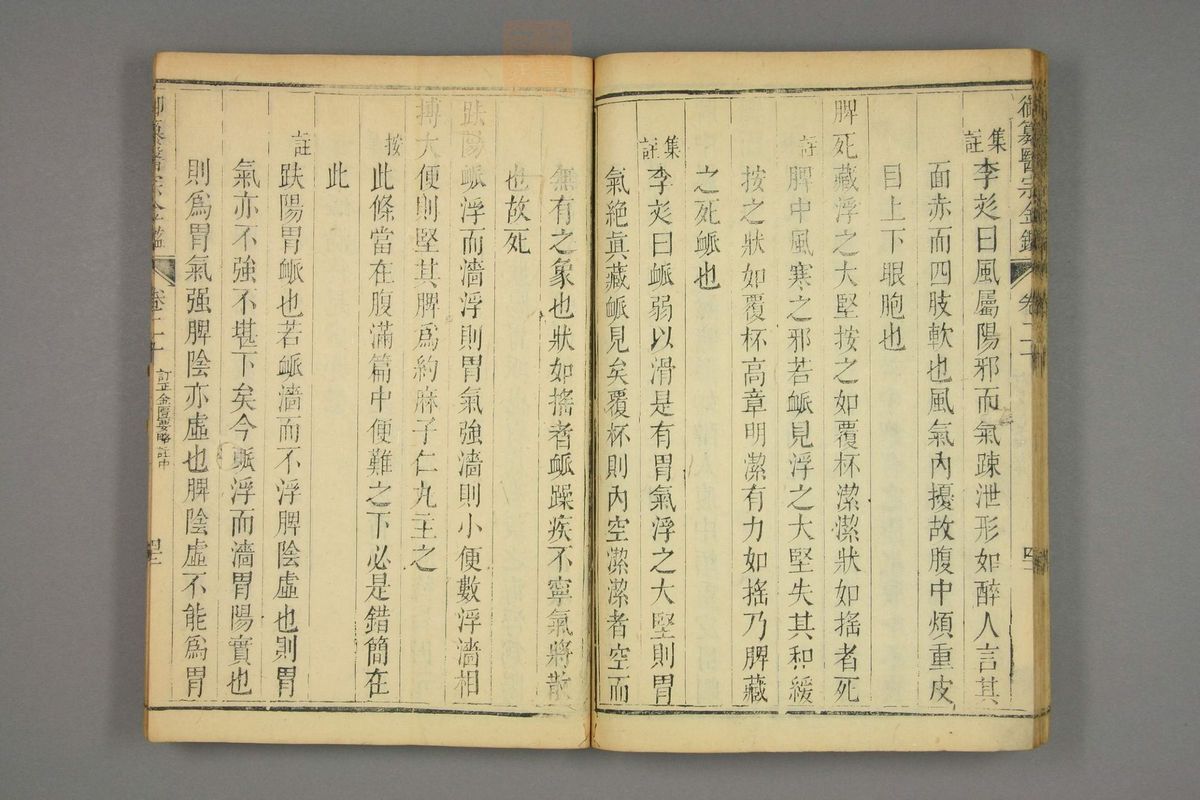 御纂醫宗金鑑 卷二十
集註 李彣曰風屬陽邪而氣疎泄形如醉人言其
面赤而四肢軟也風氣內擾故腹中煩重皮
目上下眼胞也
脾死藏浮之大堅按之如覆杯潔潔狀如搖者死
註 脾中風寒之邪若脈見浮之大堅失其和緩
按之狀如覆杯高章明潔有力如搖乃脾藏
之死脈也
集註 李彣曰脈弱以滑是有胃氣浮之大堅則胃
氣絶眞藏脈見矣覆杯則內空潔潔者空而
無有之象也狀如搖者脈躁疾不寧氣將散
也故死
趺陽脈浮而濇浮則胃氣強濇則小便數浮濇相
搏大便則堅其脾爲約麻子仁丸主之
按 此條當在腹滿篇中便難之下必是錯簡在
此
註 趺陽胃脈也若脈濇而不浮脾陰虛也則胃
氣亦不強不堪下矣今脈浮而濇胃陽實也
則爲胃氣强脾陰亦虛也脾陰虛不能爲胃
御纂醫宗金鑑 卷二十 訂正金匱要略註中